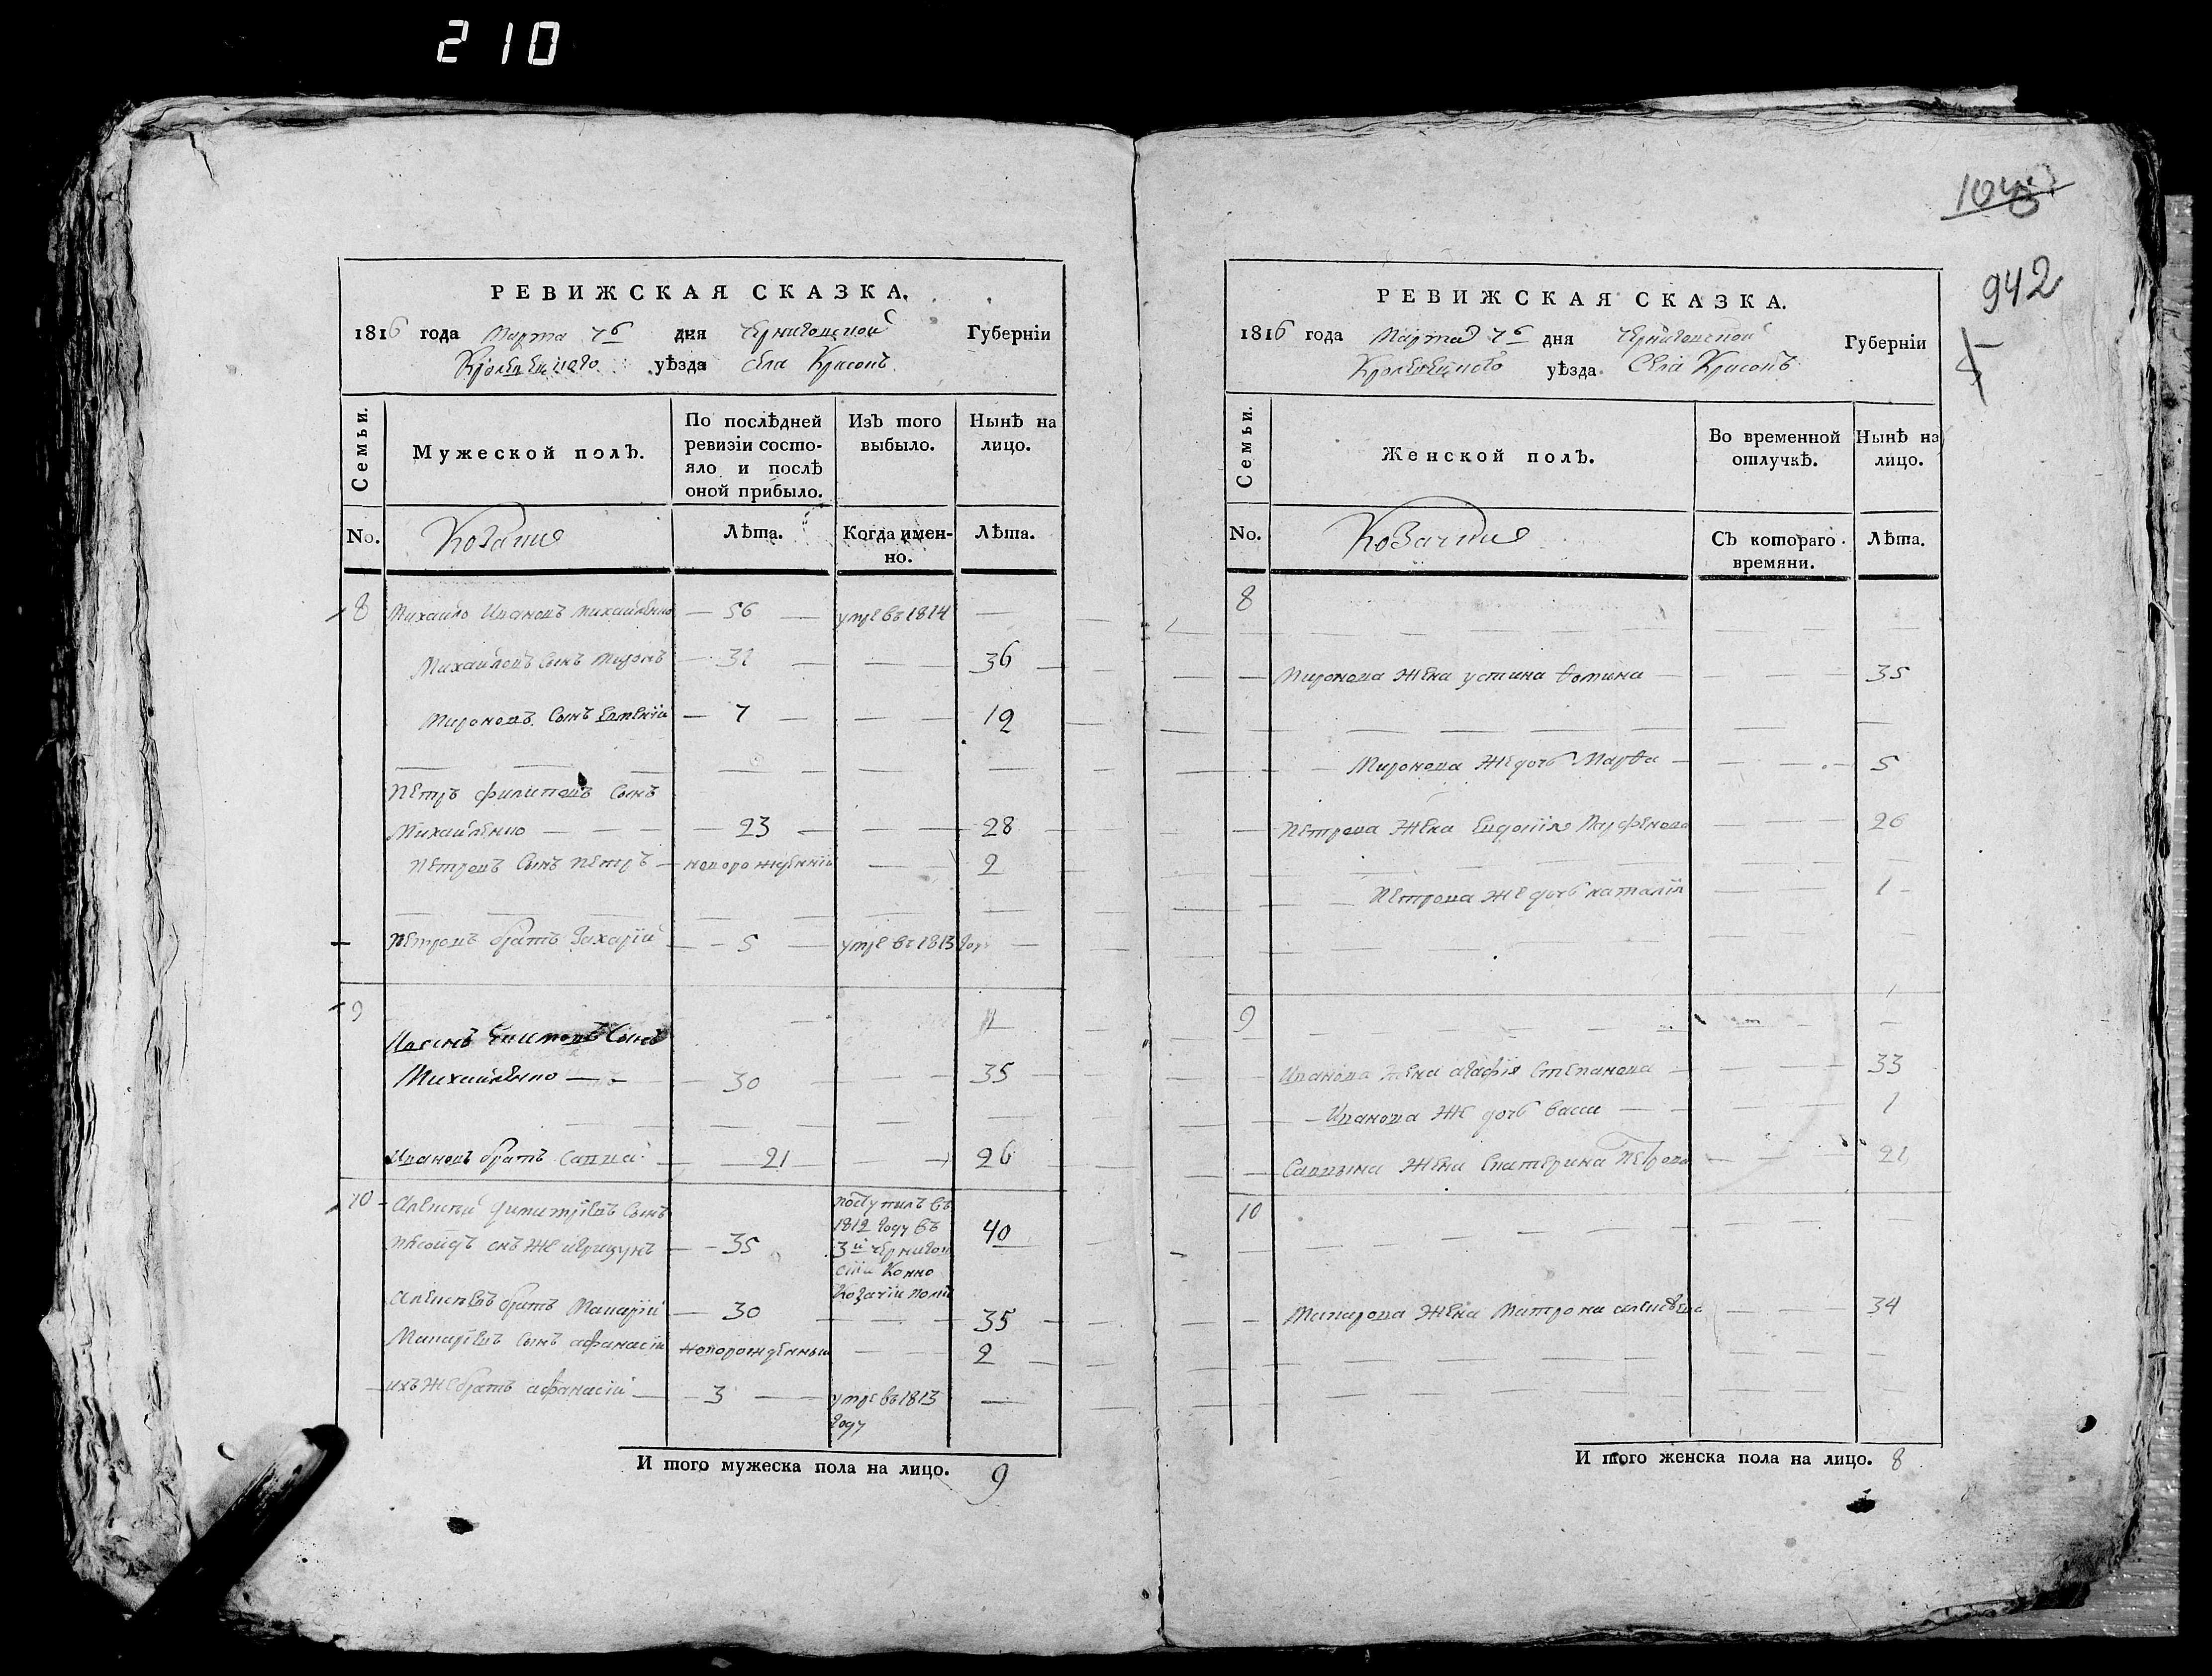 210
1043
942
РЕВИЖСКАЯ СКАЗКА.
1816 года Марта 7б дня Черниговской Губерніи
Кролевецкого уѣзда Села Красокъ
Семьи.
Мужеской полъ.
По послѣдней ревизіи состо-
яло и послѣ
оной прибыло.
Изъ того
выбыло.
Нынѣ на
лицо.
No.
Козачие
Лѣта.
Когда имен-
но.
Лѣта.
8 Михайло Ивановъ Михайленко — 56 — умре въ 1814 —
Михайловъ сынъ Миронъ — 31 — — — 36
Мироновъ сынъ Евтений — 7 — — — 12
Петръ Филиповъ сынъ
Михайленко — — — 23 — — — 28
Петровъ сынъ Петръ — новорожденній — — 2
Петровъ братъ Захарій — 5 — умре въ 1813 году —
9
Иванъ сынъ
Михайленко — — 30 — — — 35
Ивановъ братъ Савва — 21 — — — 26
10 Алексѣй Димитріевъ сынъ
онъ же — 35 40
поступилъ въ
1812 году въ
3й Чернигов
скій Конно
Козачій полкъ
Алексѣевъ братъ Макарій — 30 — — — 35
Макаріевъ сынъ афанасій новорожденный — — 2
ихъ же братъ афанасій — 3 — умре въ 1813 —
году
И того мужеска пола на лицо. 9
РЕВИЖСКАЯ СКАЗКА.
1816 года Марта 7б дня Черниговской Губерніи
Кролевецкого уѣзда Села Красокъ
Семьи.
Женской полъ.
Во временной
отлучкѣ.
Нынѣ на
лицо.
No.
Козачие
Съ котораго
времяни.
Лѣта.
8
Миронова жена устина Ѳомина — — — 35
Миронова же дочь Марѳа — — — 5
Петрова жена Евдокія Парфенова — — — 26
Петрова же дочь наталія — — 1
9
Иванова жена агафія Степанова — — — 33
Иванова же дочь васса — — — 1
Саввына жена Екатерина Петрова — — — 21
10
Макарова жена Матрона алексѣева — — — 34
И того женска пола на лицо. 8